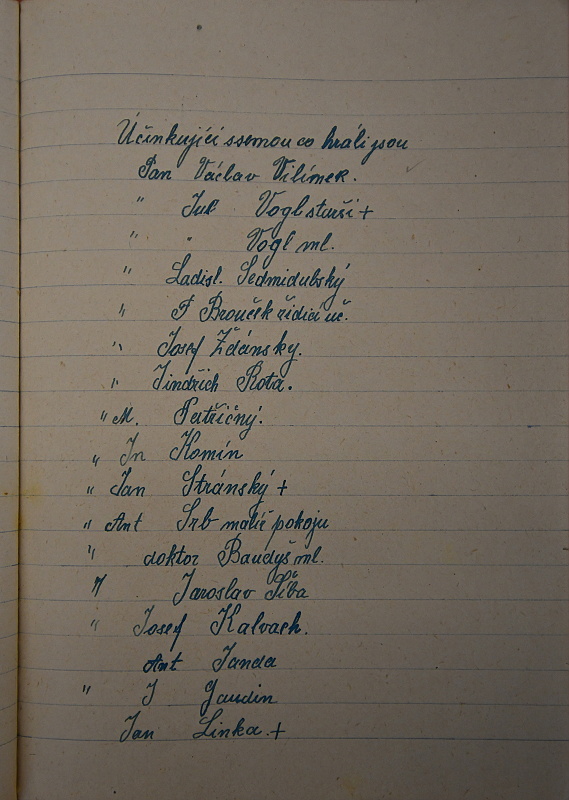 Účinkující ssemou co hráli jsou
Pan Václav Vilímek.
" Vogl starší +
" " Vogl ml.
" Ladisl. Sedmidubský
" F Brouček řidící uč.
" Josef Žďánsky.
" Jindřich Rota.
" M. Petřičný.
" Jn Komín
" Jan Stránský +
" Ant Srb malíř pokoju
" doktor Baudyš ml.
" Jaroslav Říba
" Josef Kalvach.
Ant Janda
" J Gaudin
Jan Linka. +